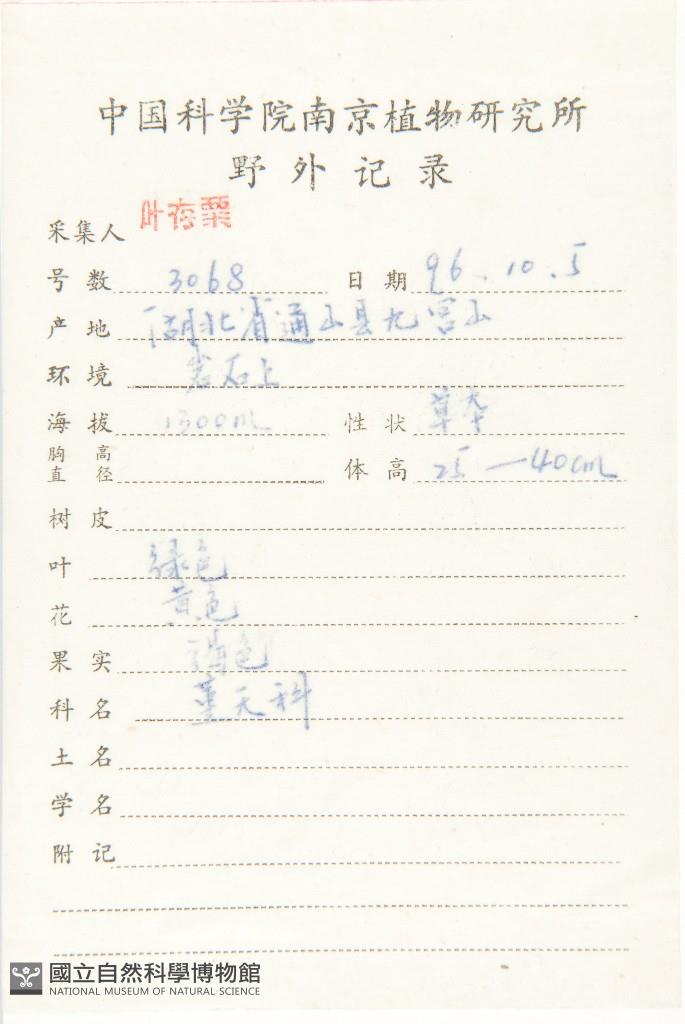 中国科学院南京植物研究所
野外记录
采集人 叶存粟
号数 3068 日期 96.10.5
产地 湖北省通山县九宫山
环境 岩石上
海拔 1300m 性状 草本
胸高直径 体高 25—40cm
树皮
叶 绿色
花 黄色
果实 褐色
科名 景天科
土名
学名
附记
國立自然科學博物館
NATIONAL MUSEUM OF NATURAL SCIENCE